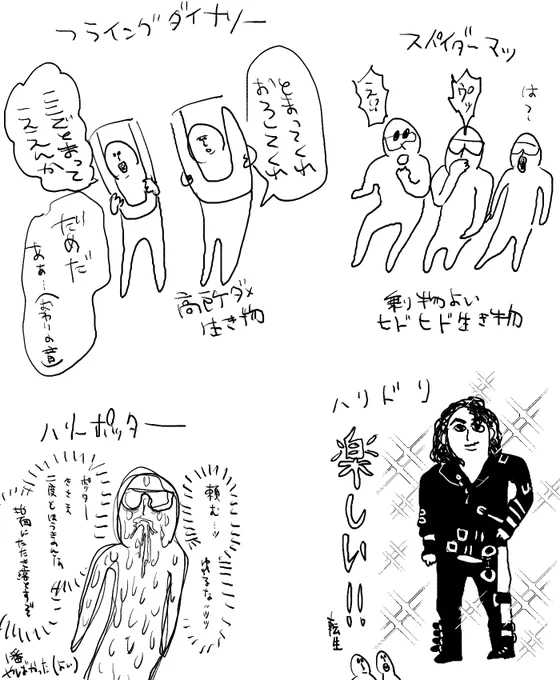 フライングダイナソー
とまってくれ
おろしてくれ
ここでとまって
ええんか
だめだ
あぁ…(おわりの意)
高所ダメ
生き物
スパイダーマン
え!!
ウプッ
は〜
乗り物よい
ヒドヒド生き物
ハリーポッター
頼む…!!
ゆれるなッッッ
ポッター
きさま
二度とほうきのるな
地面にたたき落とすぞ
1番
やばかった(よい)
ハリドリ
楽しい!!
転生